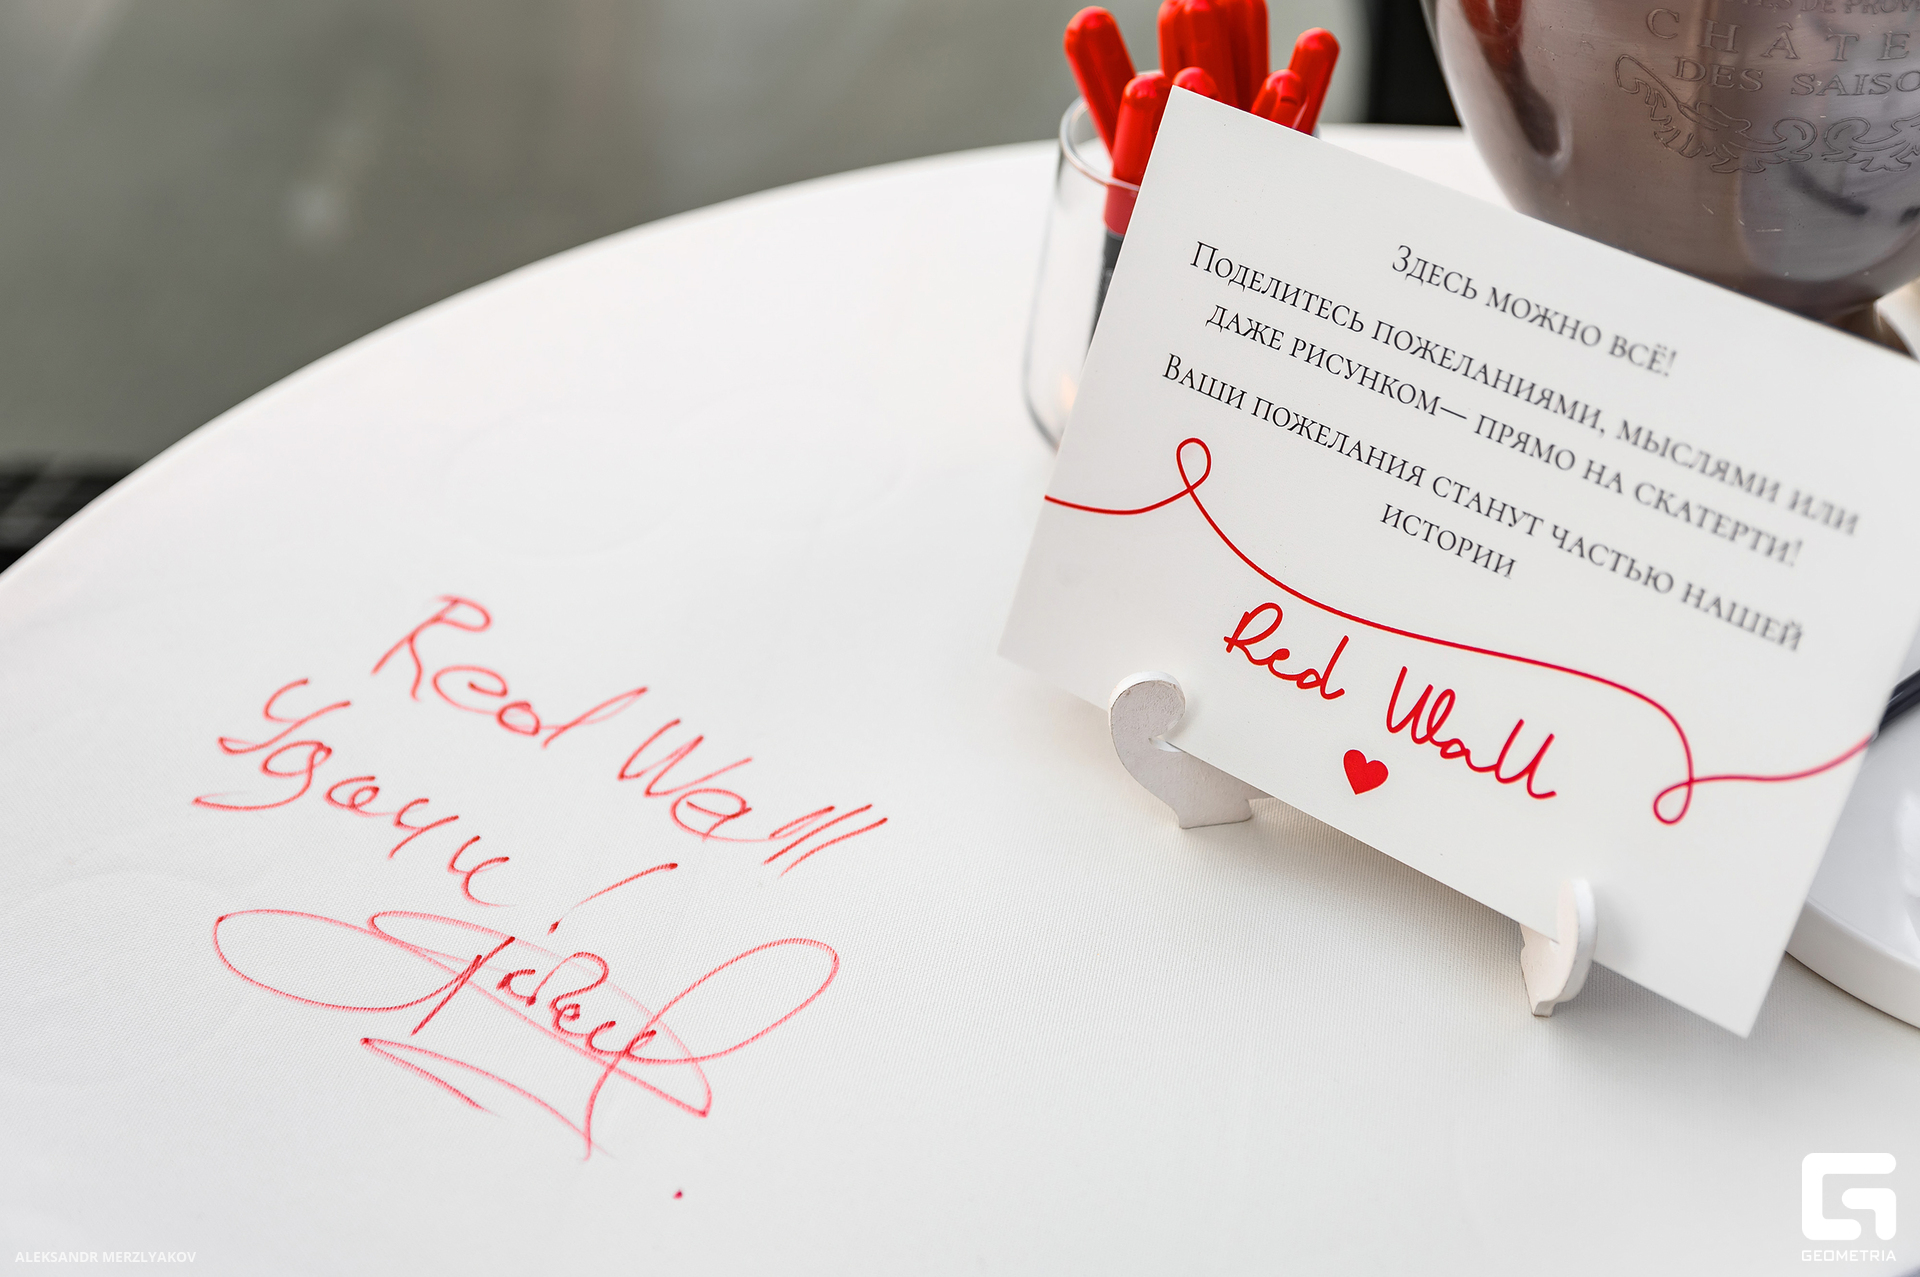 CHÂTE
DES SAISO
Здесь можно всё!
Поделитесь пожеланиями, мыслями или
даже рисунком— прямо на скатерти!
Ваши пожелания станут частью нашей
истории
Red Wall
Red Wall
Удачи!
ALEKSANDR MERZLYAKOV
GEOMETRIA